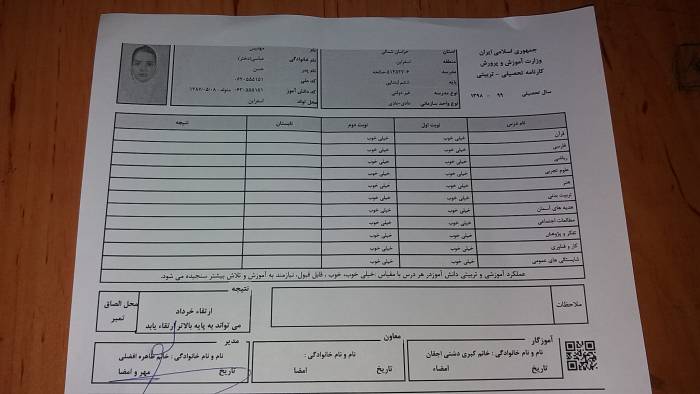 جمهوری اسلامی ایران
وزارت آموزش و پرورش
کارنامه تحصیلی - تربیتی
سال تحصیلی ۹۹ - ۱۳۹۸
استان خراسان شمالی
منطقه اسفراین
مدرسه
پایه ششم ابتدایی
نوع مدرسه غیر دولتی
نوع واحد سازمانی عادی-عادی
نام
نام خانوادگی عباسی(دختر)
نام پدر حسن
کد ملی ۰۶۲۰۵۵۵۱۵۱
کد دانش آموز ۰۶۲۰۵۵۵۱۵۱ متولد ۱۳۸۷/۰۵/۰۸
محل تولد اسفراین
نام درس نوبت اول نوبت دوم تابستان نتیجه
قرآن خیلی خوب خیلی خوب
فارسی خیلی خوب خیلی خوب
ریاضی خیلی خوب خیلی خوب
علوم تجربی خیلی خوب خیلی خوب
هنر خیلی خوب خیلی خوب
تربیت بدنی خیلی خوب خیلی خوب
هدیه های آسمان خیلی خوب خیلی خوب
مطالعات اجتماعی خیلی خوب خیلی خوب
تفکر و پژوهش خیلی خوب خیلی خوب
کار و فناوری خیلی خوب خیلی خوب
شایستگی های عمومی خیلی خوب خیلی خوب
عملکرد آموزشی و تربیتی دانش آموزدر هر درس با مقیاس :خیلی خوب، خوب ، قابل قبول، نیازمند به آموزش و تلاش بیشتر سنجیده می شود.
ملاحظات
نتیجه
ارتقاء خرداد
می تواند به پایه بالاتر ارتقاء یابد
محل الصاق
تمبر
آموزگار
نام و نام خانوادگی : خانم کبری دشتی اجقان
تاریخ امضاء
معاون
نام و نام خانوادگی :
تاریخ امضا
مدیر
نام و نام خانوادگی : خانم طاهره افضلی
تاریخ مهر و امضا